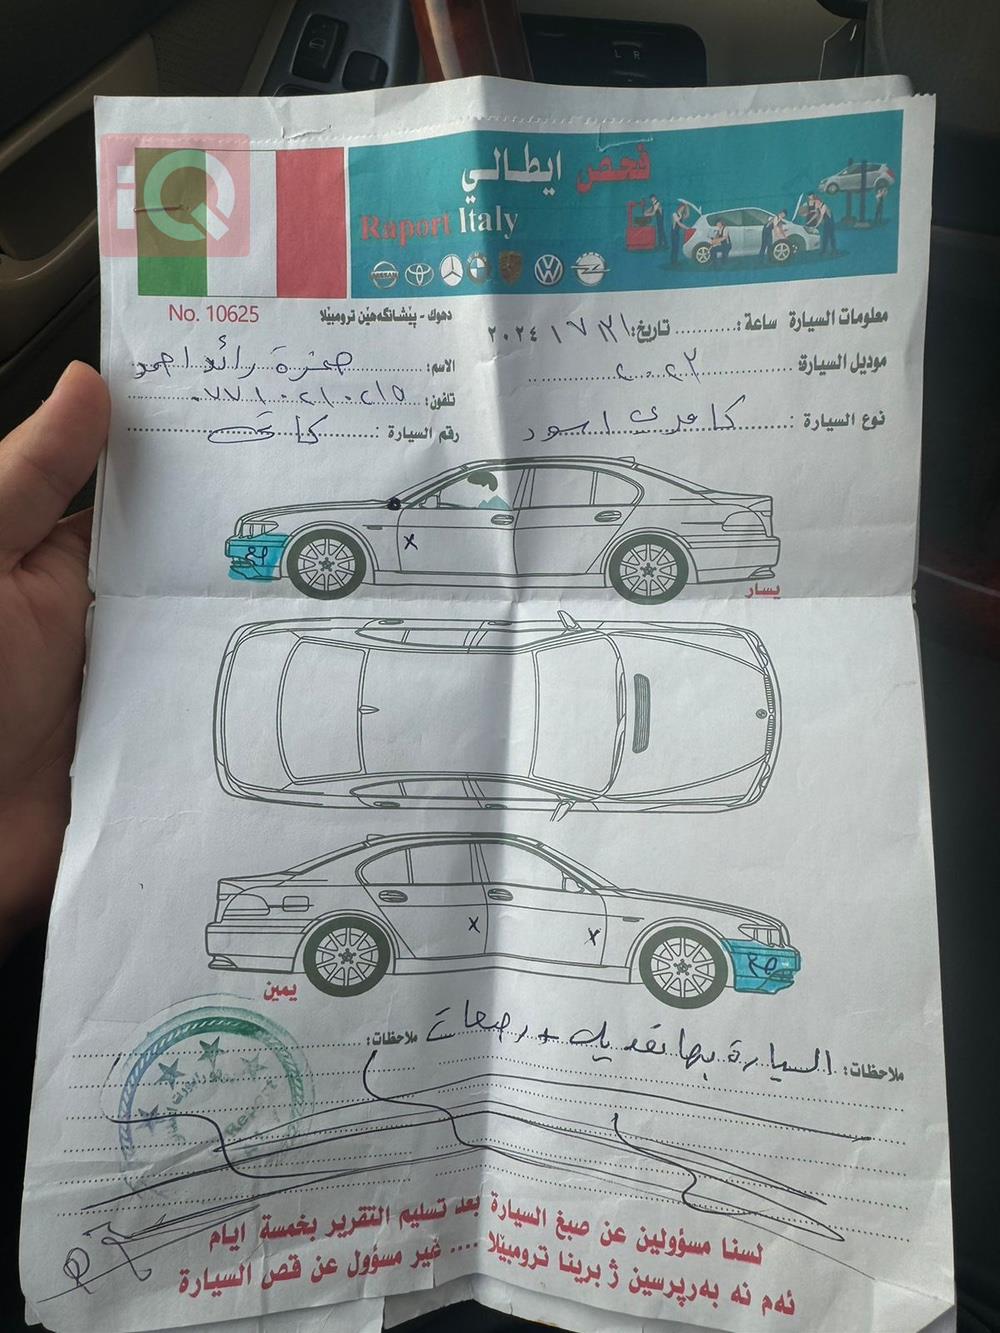 iQ
فحص ايطالي
Raport Italy
No. 10625
دهوك - پێشانگەهێن ترومبێلا
معلومات السيارة ساعة : تاريخ: ٢٠٢٤ / ٧ / ٣١
الاسم: حمزة رائد احمد
موديل السيارة: ٢٠٢٣
تلفون: ٠٧٧١٠٢١٠٢١٥
نوع السيارة : كامري اسود
رقم السيارة :
x
يسار
x
x
يمين
ملاحظات: السيارة بها تعديل +
ملاحظات:
Report
لسنا مسؤولين عن صبغ السيارة بعد تسليم التقرير بخمسة ايام
ئەم نە بەرپرسین ژ برینا ترومبێلا .... غير مسؤول عن قص السيارة